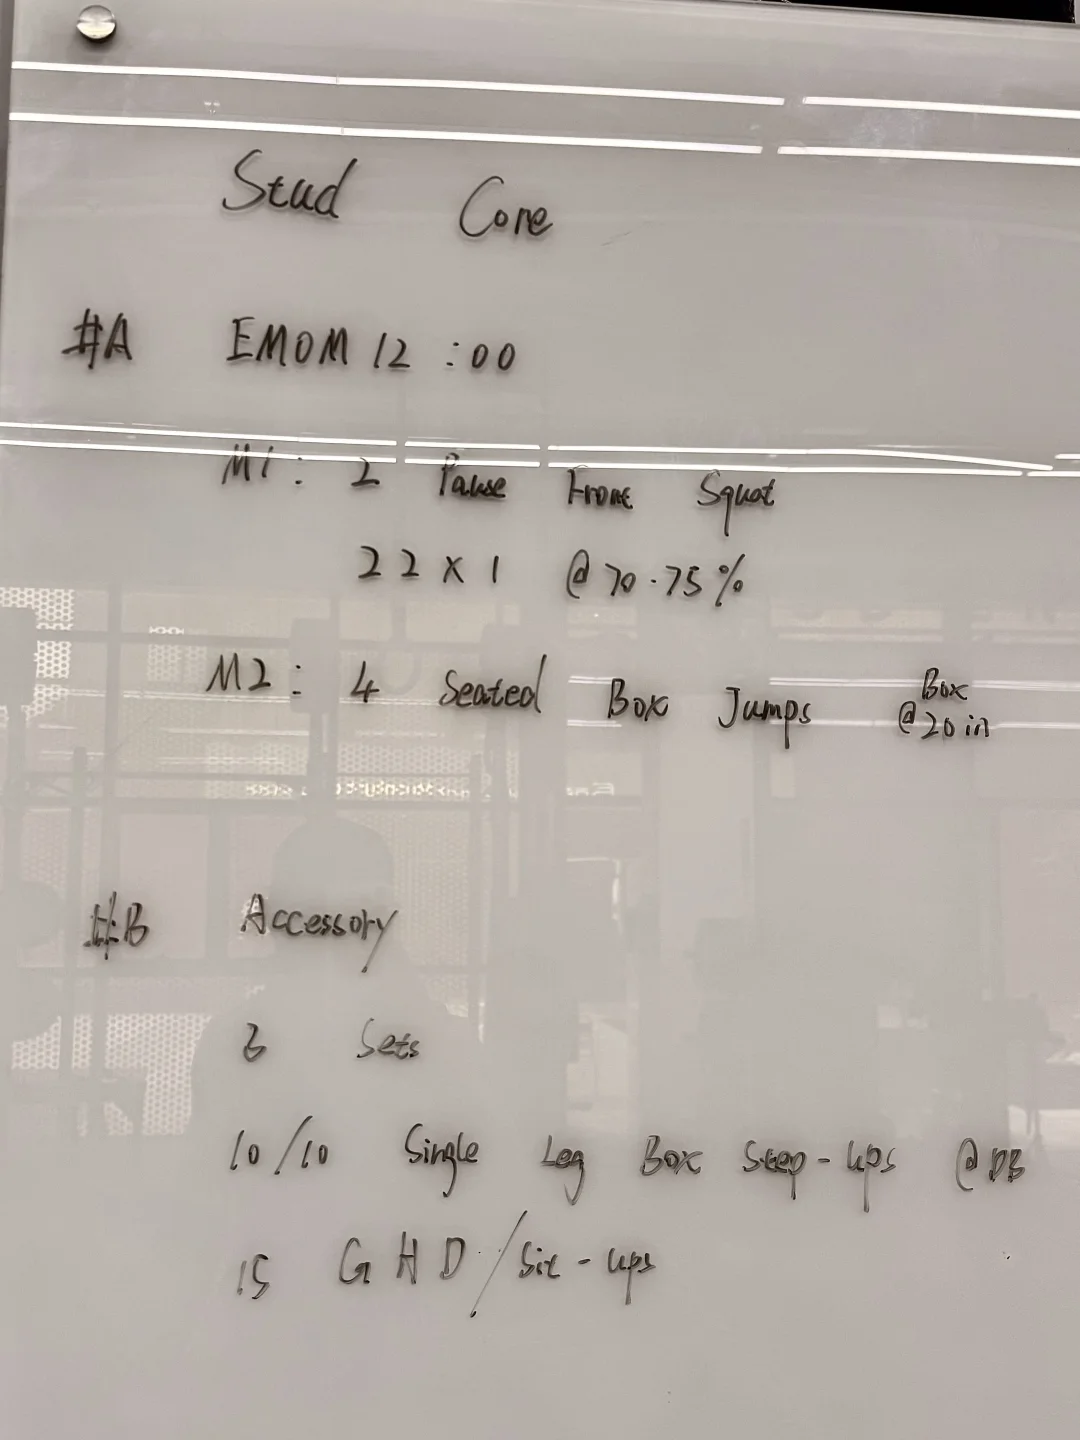 Stud Core
#A EMOM 12 :00
M1: 2 Pause Front Squat
22x1 @70-75%
M2: 4 Seated Box Jumps Box @20in
#B Accessory
3 Sets
10/10 Single Leg Box Step-ups @DB
15 GHD/Sit-ups